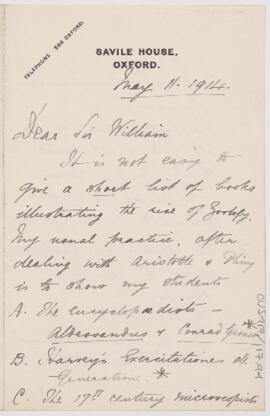 TELEPHONE 596 OXFORD.
SAVILE HOUSE,
OXFORD.
May 11. 1914.
Dear Sir William
It is not easy to
give a short list of books
illustrating the rise of Zoology.
My usual practice, after
dealing with Aristotle & Pliny
is to show my students
A. The encyclopædists –
Aldrovandus & Conrad Gesner *
B. Harvey's Exercitationes de
Generatione. *
C. The 17th century microscopists